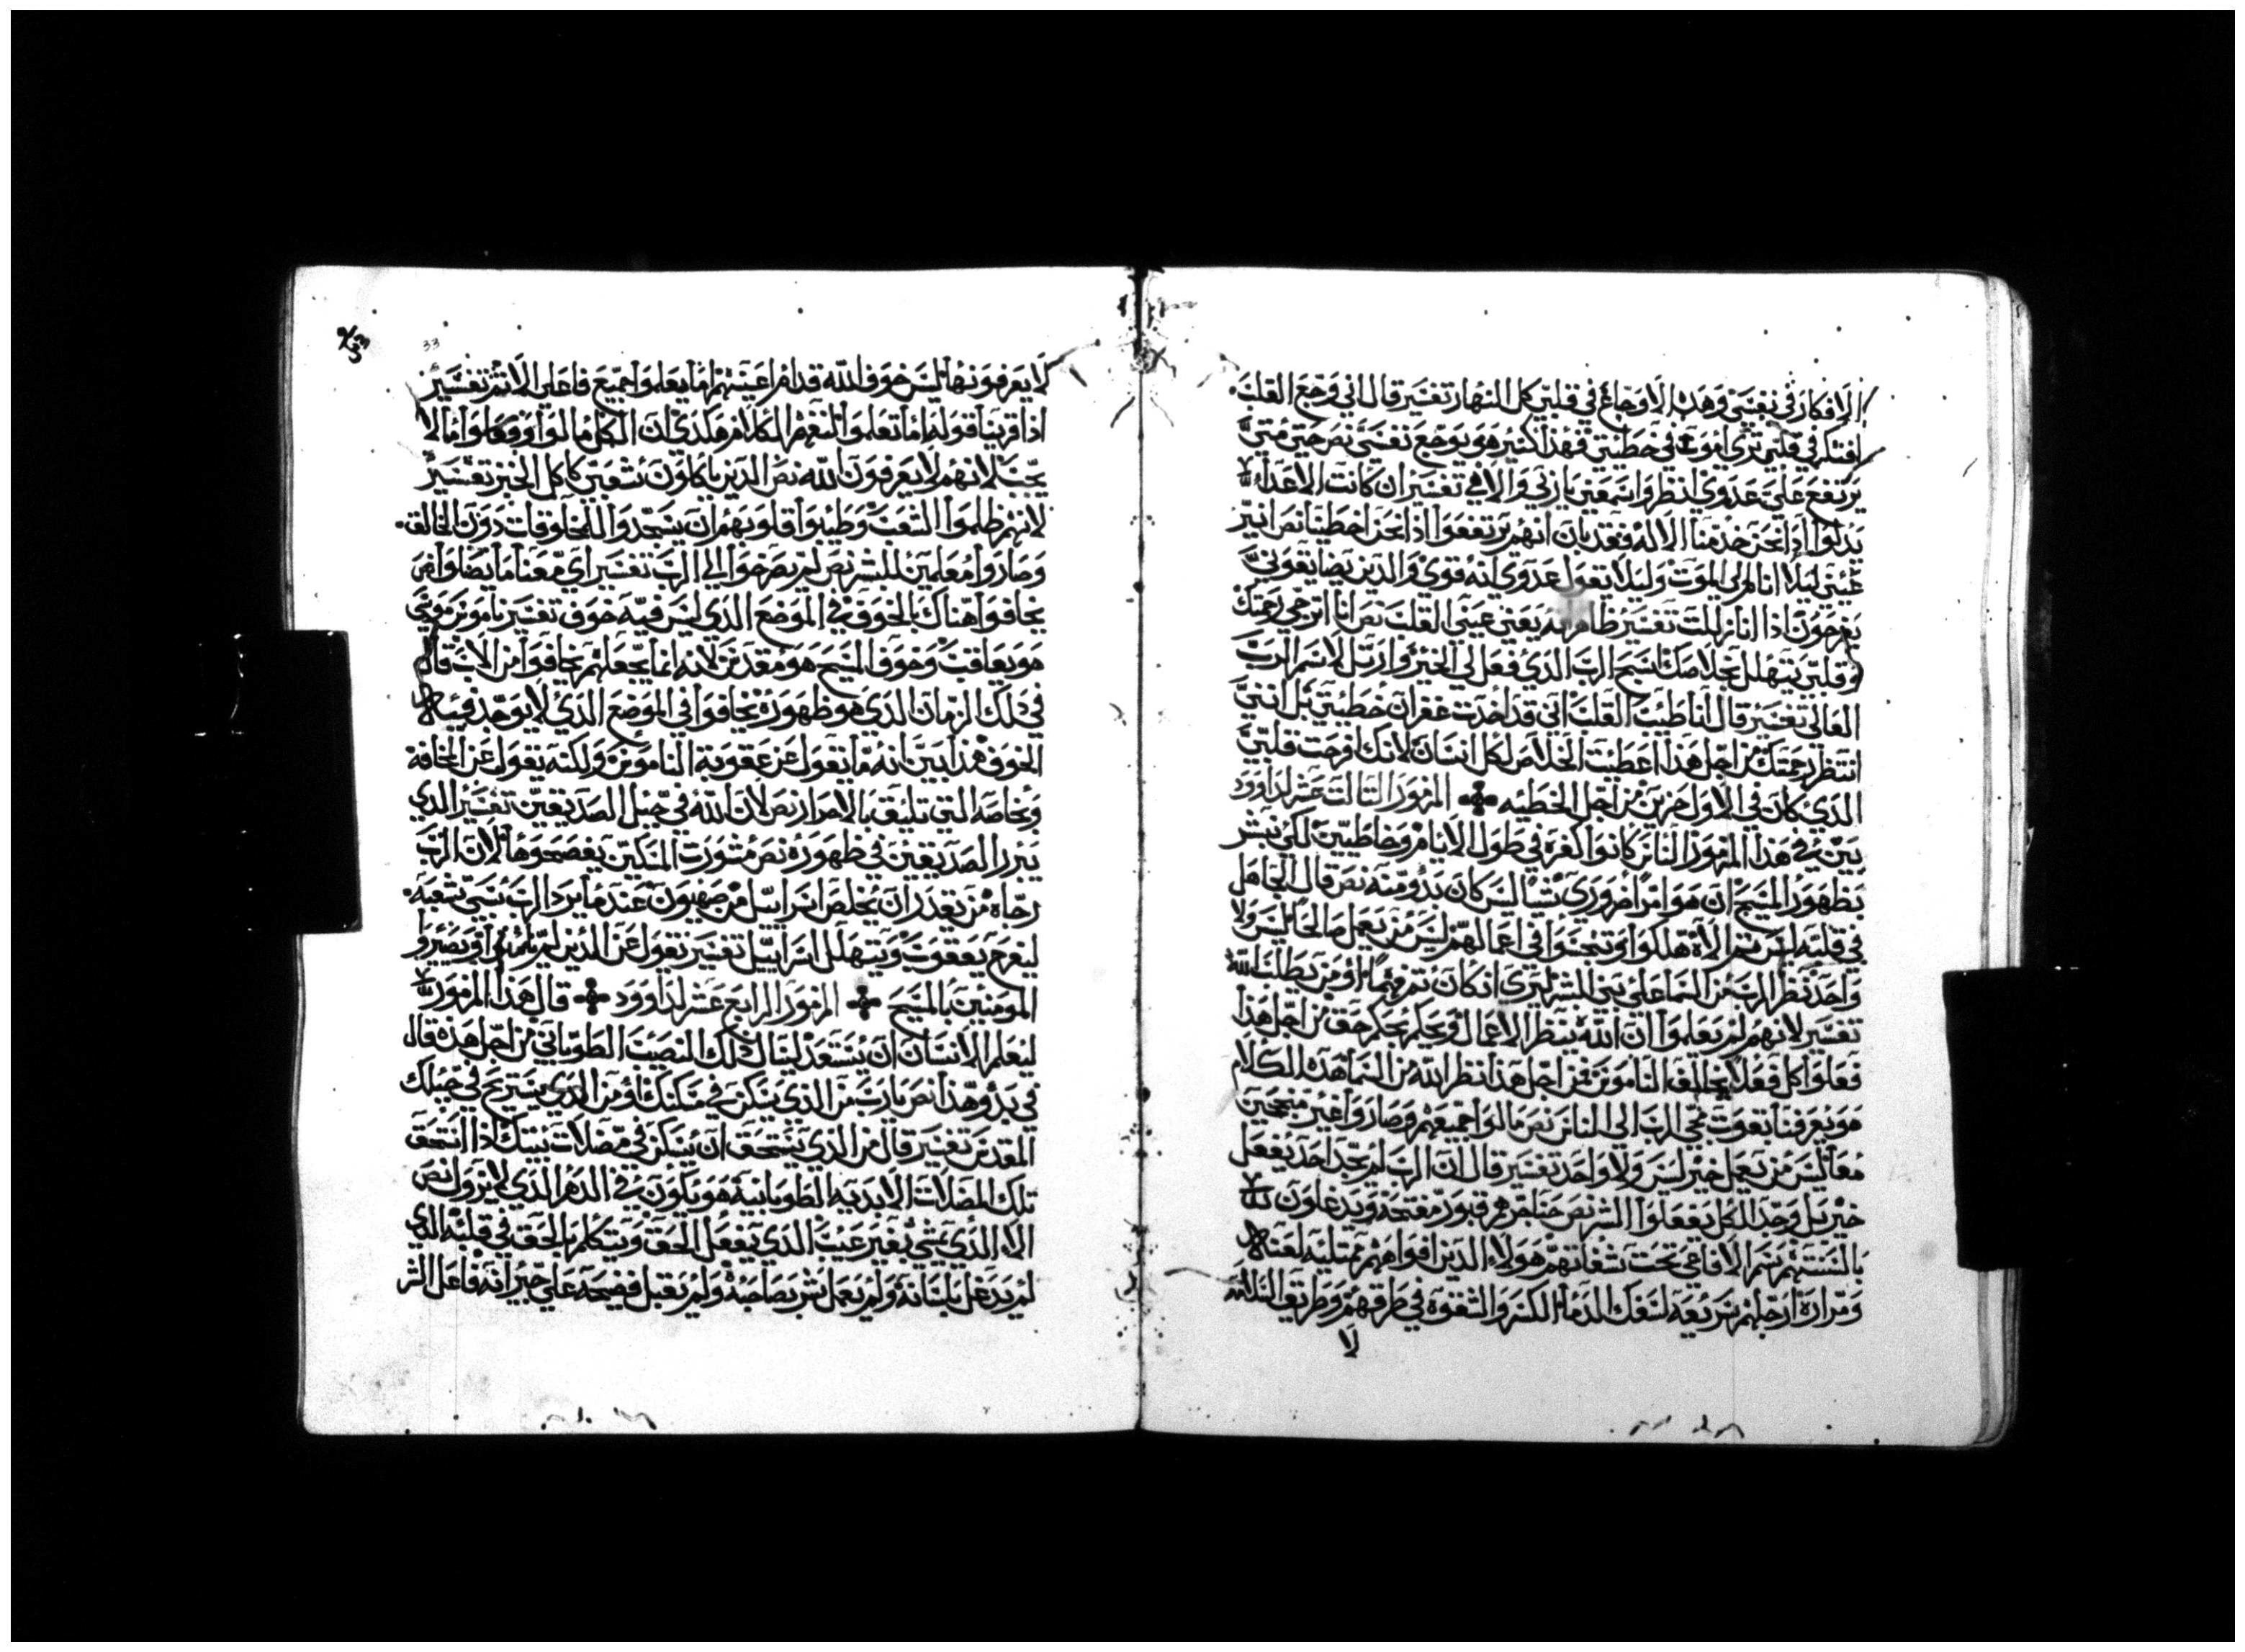 الافكار في نفسي وهذه الاوجاع في قلبي كل النهار تفسير قال اني وجع القلب
افتكر في قلبي ترى اموت في خطيتي فهذا كثير هو يوجع نفسي نص حتى متى
يرتفع علي عدوي انظر واستمعني يا ربي والاهي تفسير ان كانت الاعداء
يذلوا اذا نحن حدمنا الاله فقد بان انهم يرتفعوا اذا نحن اخطينا نص انير
عيني ليلا انام الى الموت وليلا تقول عدوي انه قوي والذين يضايقوني
يفرحون اذا انا زللت تفسير ظاهر انه يعني عيني القلب نص انا اترجى رحمتك
وقلبي يتهلل بخلاصك اسبح الرب الذي فعل لي الخير وارتل لاسم الرب
العالي تفسير قال انا طيبت القلب اني قد اخدت غفران خطيتي بل انني
انتظر رحمتك من اجل هذا اعطيت الخلاص لكل انسان لانك افرحت قلبي
الذي كان في الاول حزين من اجل الخطيه المزمور الثالث عشر لداوود
بين في هذا المزمور الناس كانوا كفره في طول الانام وخاطيين لكي نبشر
بظهور المسيح ان هو امرا ضروري شيا ليس كان بد ومنه نص قال الجاهل
في قلبه ليس ثم الاه هلكوا وتنجسوا في اعمالهم ليس من يعمل صالحا ليس ولا
واحد نظر الرب من السما على بني البشر ليرى ان كان ثم فهما او من يطلب الله
تفسير لانهم لم يعلموا ان الله ينظر الاعمال ويحكم بحكم حق من اجل هذا
فعلوا كل فعلا يخالف الناموس من اجل هذا نظر الله من السما هذه الكلام
هو يعرفنا بقوت مجي الرب الى الناس نص مالوا جميعهم وصاروا غير منجحين
معا ليس من يعمل خير ليس ولا واحد تفسير قال ان الرب لم يجد احد يفعل
خير بل وجد الكل يفعلوا الشر نص حناجرهم قبور مفتحه ويدغلون
بالسنتهم سم الافاعي تحت شفاتهم هولاء الذين افواههم ممتليه لعنه
ومراره ارجلهم سريعه لسفك الدما الكسر والشقوه في طرقهم وطريق السلامه
لا
33
لا يعرفونها ليس خوف الله قدام اعينهم اما يعلموا جميع فاعلي الاثم تفسير
اذا قرينا قوله اما تعلموا لنفهم الكلام هكذى ان الكل مالوا وفعلوا ما لا
يجب لانهم لا يعرفون الله نص الذين ياكلون شعبي كاكل الخبز تفسير
لانهم ظلموا الشعب وطيبوا قلوبهم ان يسجدوا للمخلوقات دون الخالق
وصاروا معلمين للبشر نص لم يصرخوا الى الرب تفسير اي معنا ما يصلوا نص
يخافوا هناك بالخوف في الموضع الذي ليس فيه خوف تفسير ناموس موسى
هو يعاقب وخوف المسيح هو مقدس لانه انما يجعلهم يخافوا من الاب قال
في ذلك الزمان الذي هو ظهوره يخافوا في الموضع الذي لا يوجد فيه
الخوف هذا بين انه ما يقول عن عقوبة الناموس ولكنه يقول عن المخافة
وبخاصه التي تليق بالاحرار نص لان الله في جيل الصديقين تفسير الذي
يبرر الصديقين في ظهوره نص مشورت المسكين يفضحوها لان الرب
رجاه من يقدر ان يخلص اسراييل من صهيون عند ما يرد الرب سبي شعبه
ليفرح يعقوب ويتهلل اسراييل تفسير يقول عن الذين لم يامنوا ويصيروا
المومنين بالمسيح المزمور الرابع عشر لداوود قال هذا المزمور
ليعلم الانسان ان يستعد لينال ذلك النصيب الطوباني من اجل هذه قال
في بدو هذا نص يا رب من الذي يسكن في مسكنك او من الذي يستريح في جبلك
المقدس تفسير قال من الذي يستحق ان يسكن في مضلات بيتك اذا استحق
تلك المضلات الابديه الطوبانية هو يكون في الدهر الذي لا يزول نص
الا الذي يمشي بغير عيب الذي يفعل الحق ويتكلم بالحق في قلبه الذي
لم يدغل بلسانه ولم يعمل شر بصاحبه ولم يقبل فضيحه على جيرانه فاعل الشر